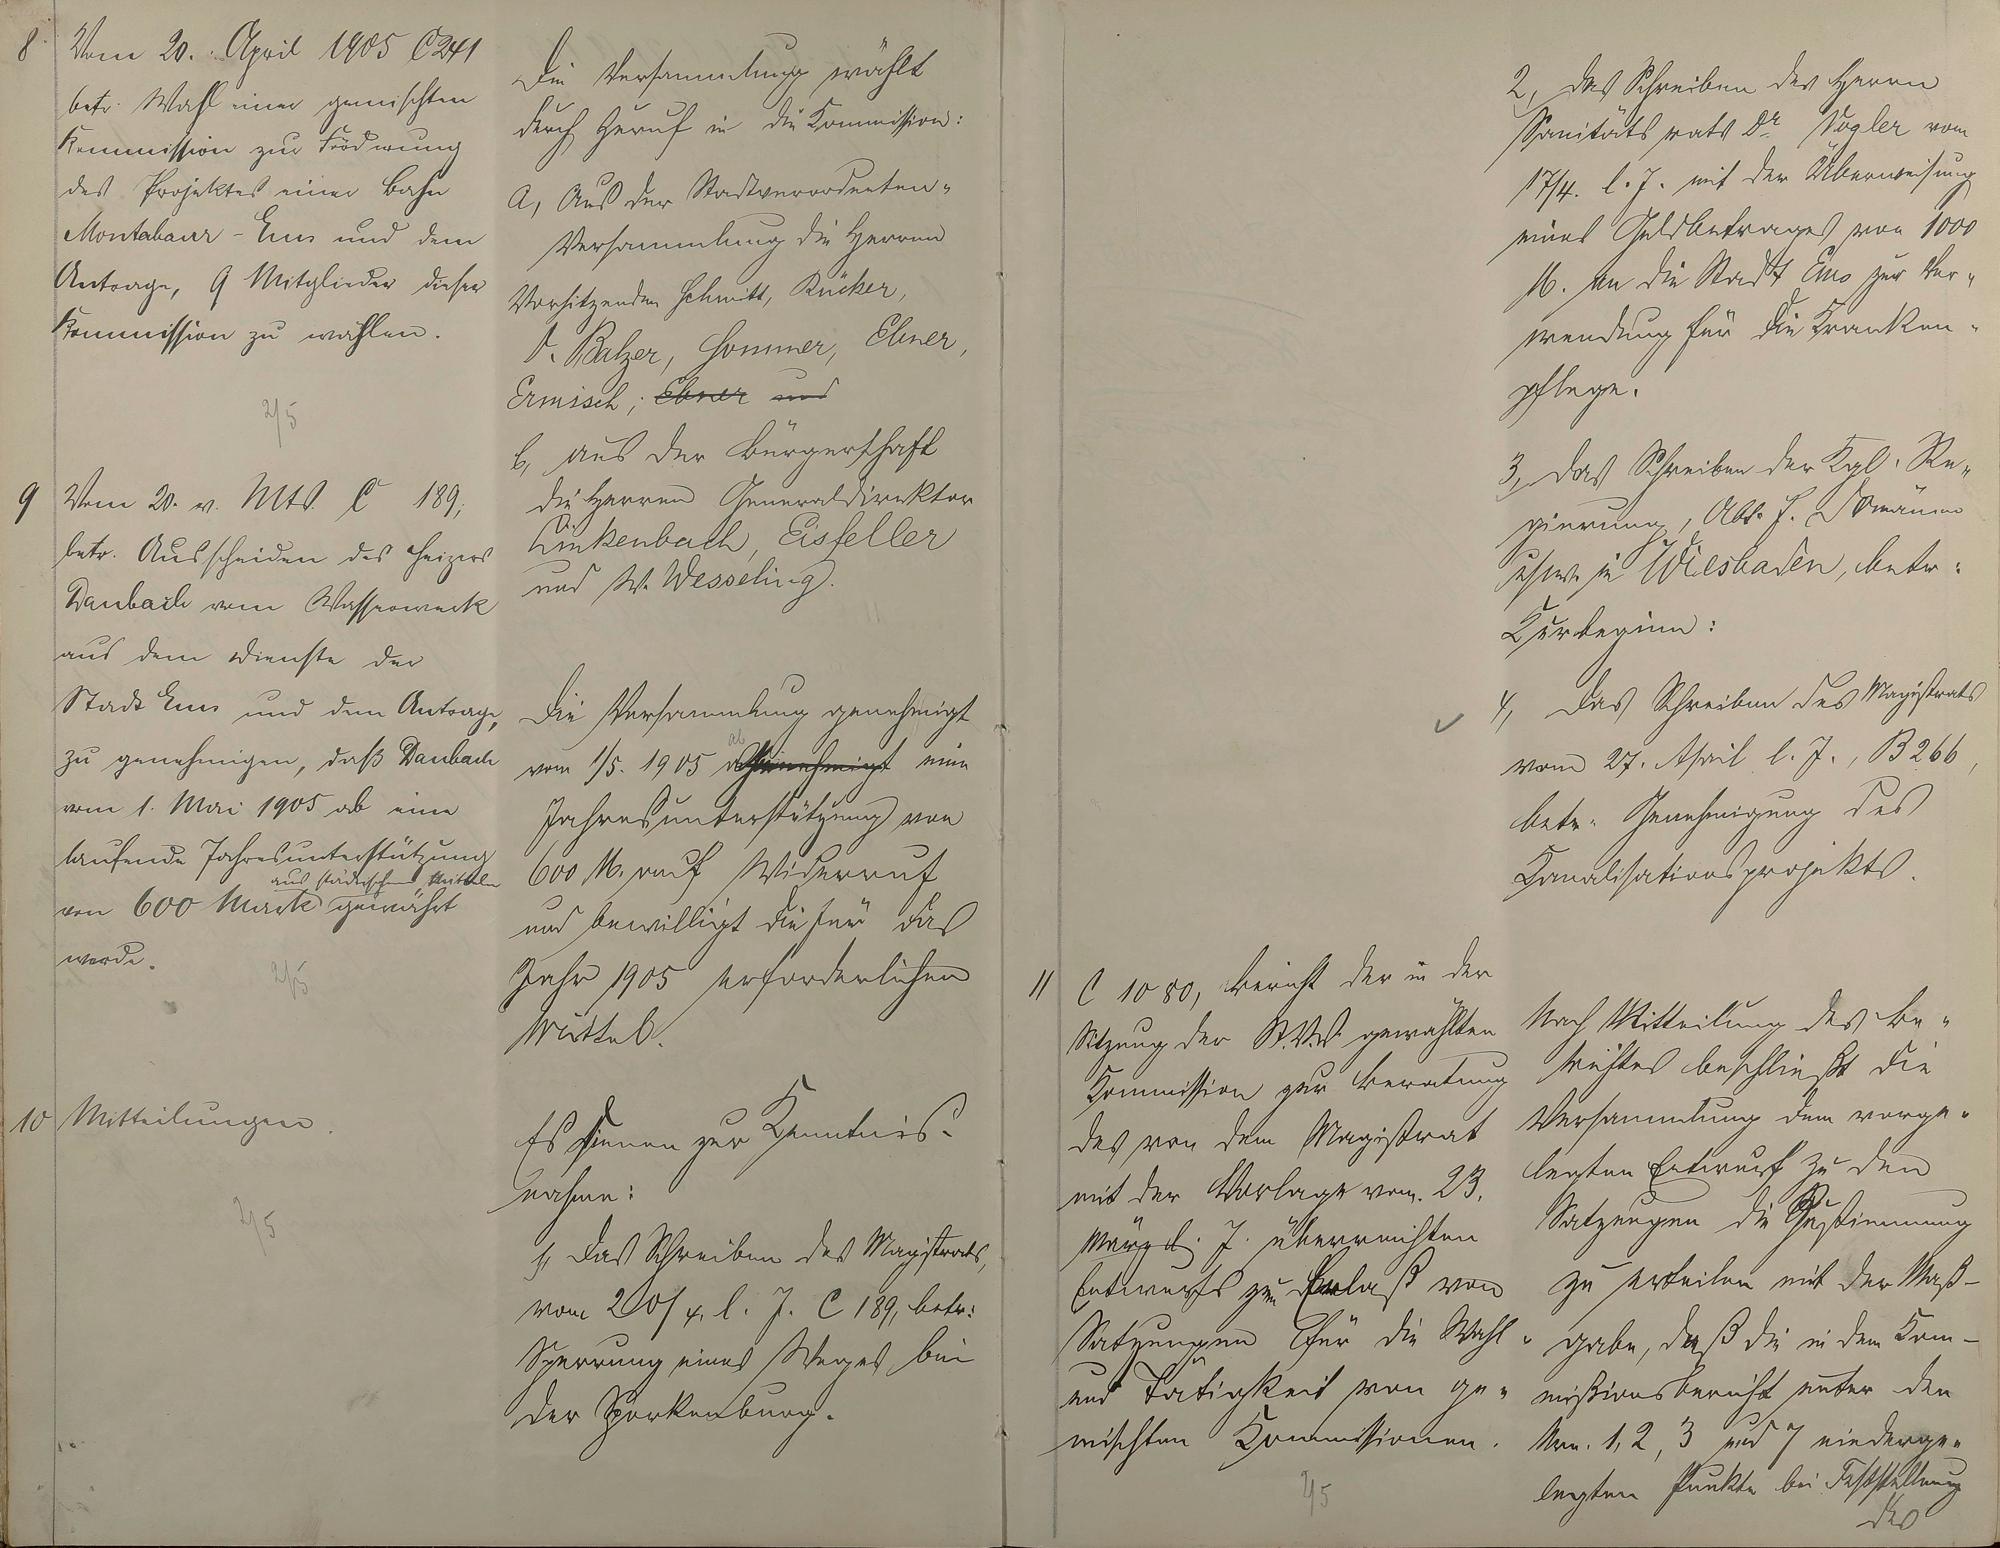 8 Vom 20. April 1905 C 241
betr. Wahl einer gemischten
Kommission zur Förderung
des Projektes einer Bahn
Montabaur - Ems und dem
Antrage, 9 Mitglieder dieser
Kommission zu wählen.
2/5
Die Versammlung wählt
durch Zuruf in die Kommission:
a, Aus der Stadtverordneten-
Versammlung die Herren
Vorsitzenden Schmitt, Rücker,
Balzer, Sommer, Ebner,
Ermisch, Ebner und
b, aus der Bürgerschaft
die Herren Generaldirektor
Linkenbach, Eisfeller
und W. Wesseling.
9 Vom 20. v. Mts. C 189,
betr. Ausscheiden des Heizers
Daubach vom Wasserwerk
aus dem Dienste der
Stadt Ems und dem Antrage,
zu genehmigen, daß Daubach
vom 1. Mai 1905 ab eine
laufende Jahresunterstützung
aus städtischen Mitteln
von 600 Mark gewährt
werde.
2/5
Die Versammlung genehmigt
vom 1/5. 1905 ab eine
Jahresunterstützung von
600 M. auf Widerruf
und bewilligt die für das
Jahr 1905 erforderlichen
Mittel.
10 Mitteilungen.
2/5
Es dienen zur Kenntnis-
nahme:
1, Das Schreiben des Magistrats,
vom 20/4. l. J. C 189, betr:
Sperrung eines Weges bei
der Sporkenburg.
2, Das Schreiben des Herrn
Sanitätsrats Dr. Vogler vom
17/4. l. J. mit der Überweisung
eines Geldbetrages von 1000
M. an die Stadt Ems zur Ver-
wendung für die Kranken-
pflege.
3, Das Schreiben der Kgl. Re-
gierung, Abt. f. Domänen
usw. in Wiesbaden, betr.
Kurbeginn:
4, Das Schreiben des Magistrats
vom 27. April l. J., B 266,
betr. Genehmigung des
Kanalisationsprojekts.
11 C 1080, Bericht der in der
Sitzung der St.V.V. gewählten
Kommission zur Beratung
des von dem Magistrat
mit der Vorlage vom 23.
März l. J. überreichten
Entwurfs zum Erlaß von
Satzungen für die Wahl
und Tätigkeit von ge-
mischten Kommissionen.
2/5
Nach Mitteilung des Be-
richtes beschließt die
Versammlung dem vorge-
legten Entwurf zu den
Satzungen die Zustimmung
zu erteilen mit der Maß-
gabe, daß die in dem Kom-
missionsbericht unter den
Nrn. 1, 2, 3 und 7 niederge-
legten Punkte bei Feststellung
des